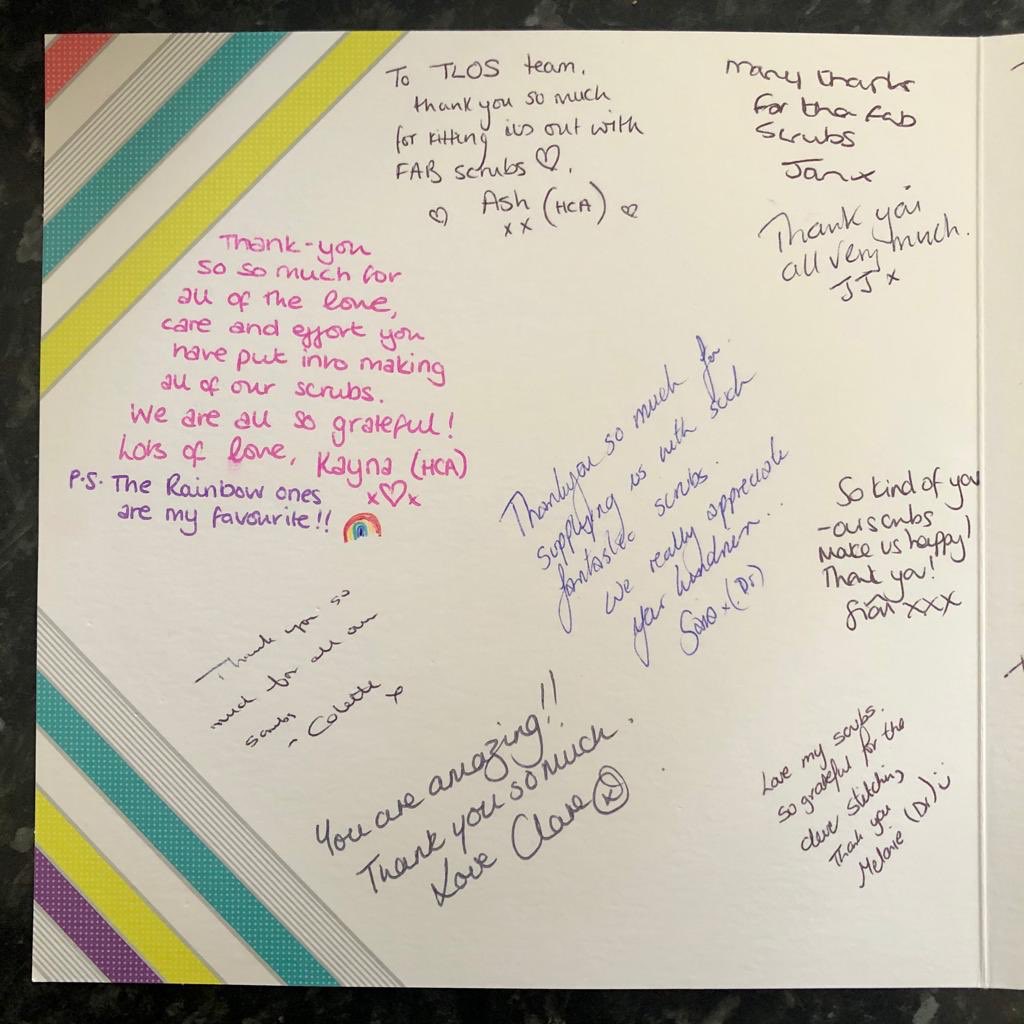 To TLOS team,
thank you so much
for kitting us out with
FAB scrubs ♡.
Ash (HCA)
xx
Many thanks
for the fab
scrubs
Jan x
Thank you
all very much.
JJ x
Thank-you
so so much for
all of the love,
care and effort you
have put into making
all of our scrubs.
We are all so grateful!
Lots of love, Kayna (HCA)
x♡x
P.S. The Rainbow ones
are my favourite!!
Thankyou so much for
supplying us with such
fantastic scrubs.
We really appreciate
your kindness...
x (Dr)
So kind of you
- our scrubs
make us happy!
Thank you!
Siân xxx
Thank you so
much for all our
scrubs
- Colette x
You are amazing!!
Thank you so much.
Love Clare x
Love my scrubs.
So grateful for the
clever stitching
Thank you
Melanie (Dr)